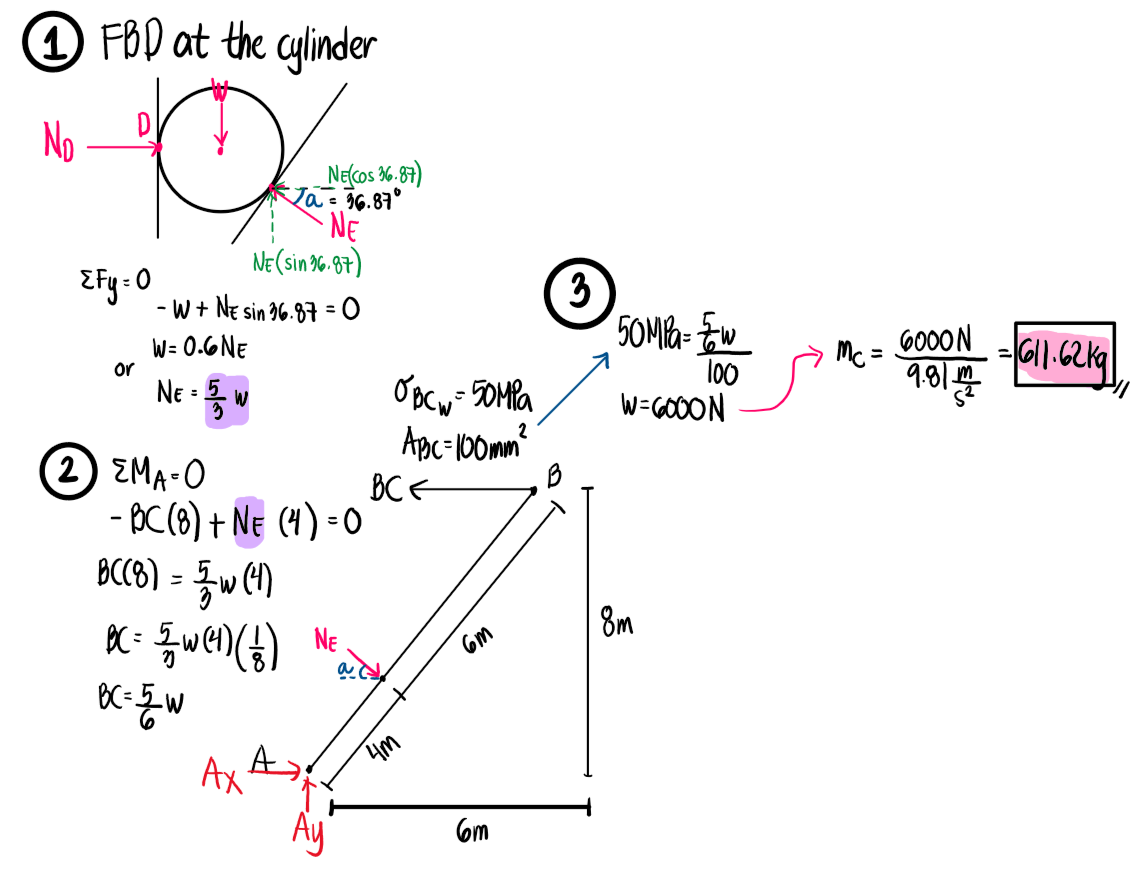 ① FBD at the cylinder
W
D
N_D
N_E(cos36.87)
a = 36.87°
N_E
N_E(sin36.87)
ΣFy=0
-W + N_E sin36.87 = 0
W= 0.6N_E
or
N_E = 5/3 W
② ΣM_A=0
-BC(8) + N_E (4) = 0
BC(8) = 5/3 W (4)
BC= 5/3 W(4)(1/8)
BC= 5/6 W
σ_BC_W = 50MPa
A_BC=100mm²
BC
B
N_E
a
6m
8m
4m
A
Ax
Ay
6m
③
50MPa= (5/6 W)/100
W=6000N
m_C = 6000N/(9.81 m/s²) = 611.62kg //